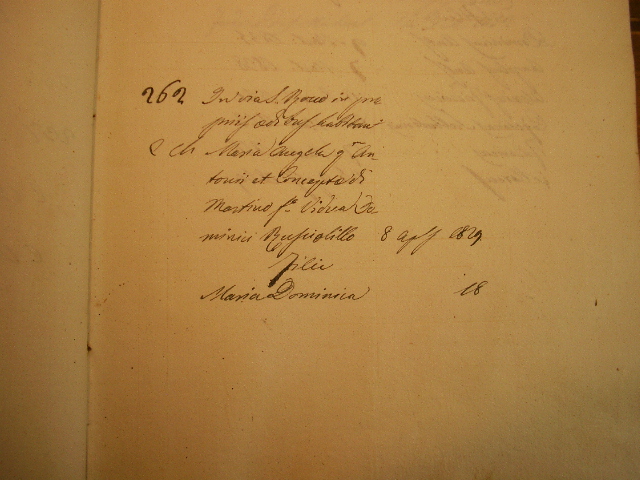 262 In via S. Rocco in pro
priis ædibus habitant
C Ch Maria Angela qm An
tonii et Concepta di
Martino f. Vidua Do
minici Rusciolillo 8 aplis 1829
Filii
Maria Dominica 18